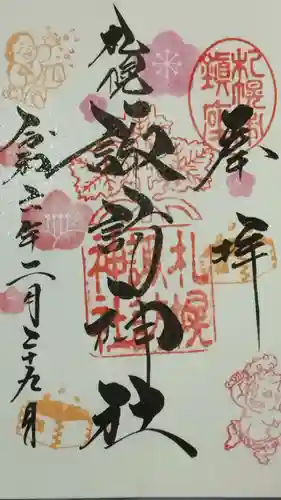 奉拝
札幌
諏訪神社
令和二年二月二十九日
札幌諏訪神社